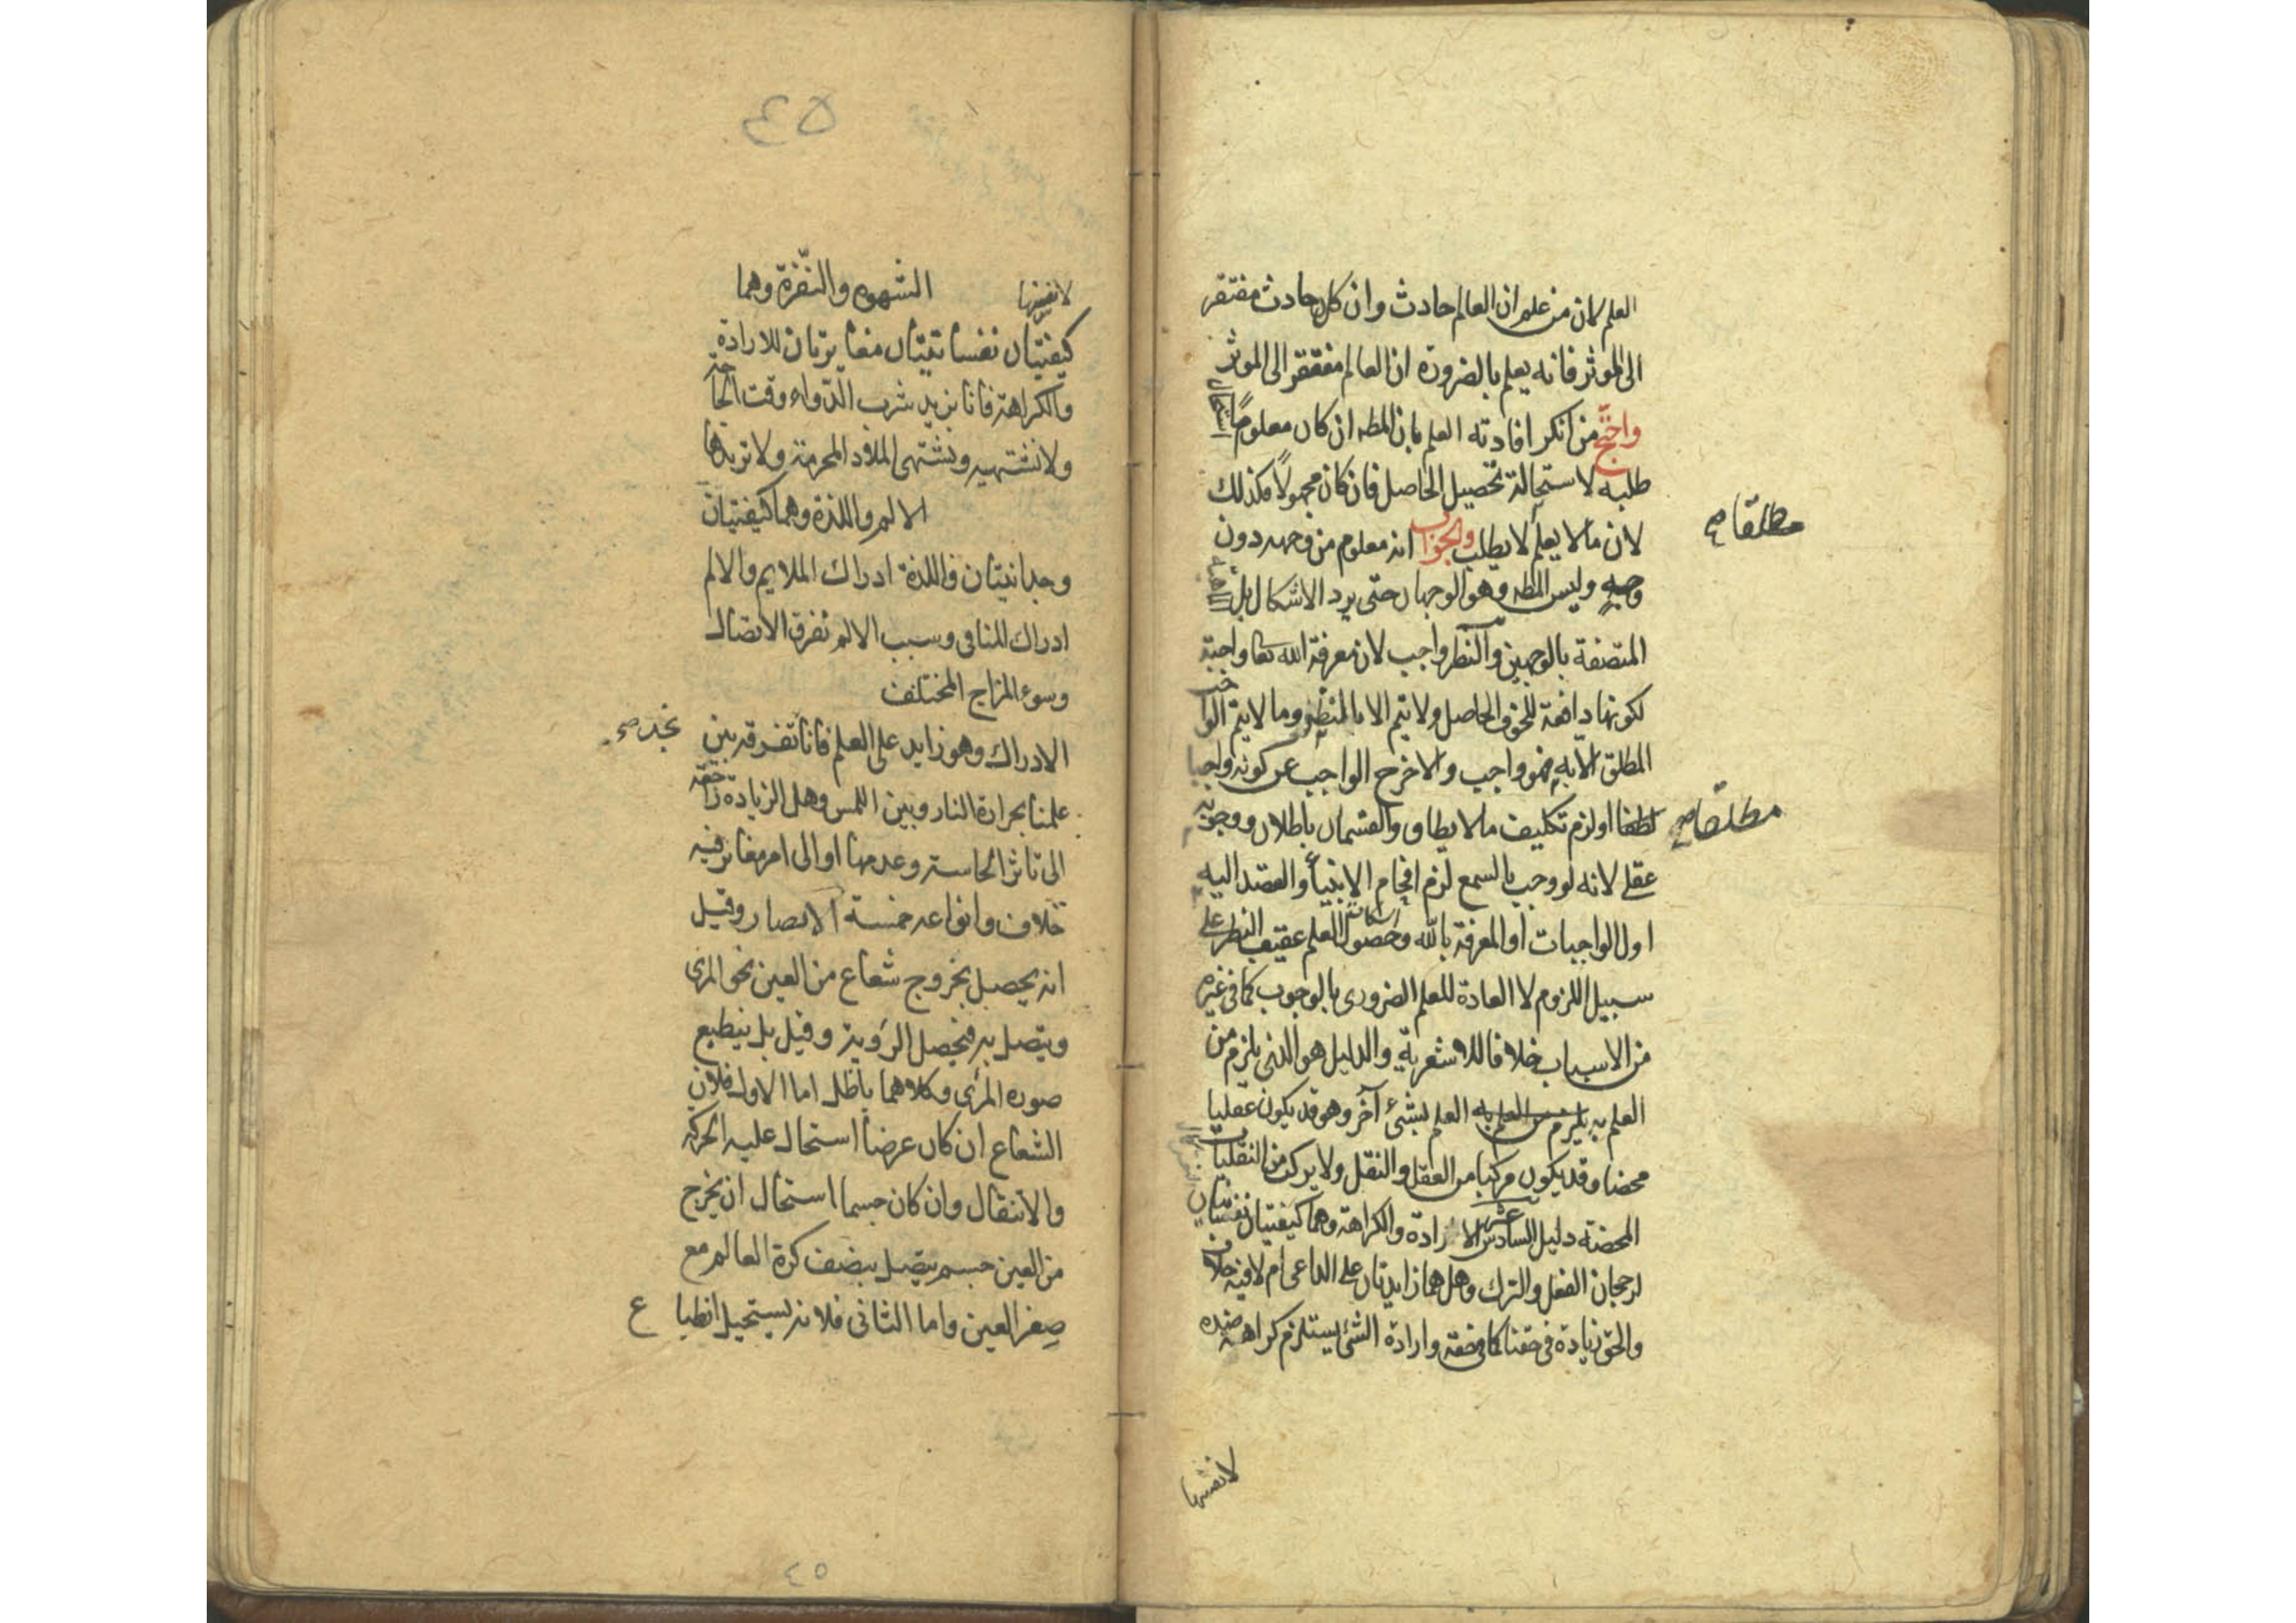 العلم لان من علم ان العالم حادث وان كل حادث مفتقر
الى المؤثر فانه يعلم بالضرورة ان العالم مفتقر الى المؤثر
واحتج من انكر افادته العلم بان المطه ان كان معلومًا استحال
طلبه لاستحالة تحصيل الحاصل فان كان مجهولًا فكذلك
مطلقا صح
لان مالا يعلم لا يطلب والجواب انه معلوم من وجهه دون
وجهٍ وليس المطه وهو الوجهان حتى يرد الاشكال بل الماهية
المتصفة بالوجهين والنظر واجب لان معرفة الله تعا واجبة
لكونها دافعة للخوف الحاصل ولا يتم الا بالنظر وما لا يتم الواجب
المطلق الا به فهو واجب والا خرج الواجب عن كونه واجبا
مطلقا صح
لطفا او لزم تكليف مالا يطاق والقسمان باطلان ووجوبه
عقلى لانه لو وجب بالسمع لزم افحام الانبيأ والقصد اليه
اول الواجبات او المعرفة بالله وحصول العلم عقيب النظر على
سبيل اللزوم لا العادة للعلم الضرورى بالوجوب كما فى غيره
من الاسباب خلافا للاشعرية والدليل هو الذى يلزم من
العلم به يلزم من العلم به العلم بشئ آخر وهو قد يكون عقليا
محضا وقد يكون مركبا من العقل والنقل ولا يركب من النقليات
المحضة دليل السادس عشر الارادة والكراهة وهما كيفيتان نفسيتان
لرجحان الفعل والترك وهل هما زايدتان على الداعى ام لا فيه خلاف
والحق زيادة فى حقنا كما فى حقه وارادة الشئ يستلزم كراهة ضده
لا نفسها
٤٥
لا نفسها الشهوه والنّفرة وهما
كيفيّتان نفسانيّتان مغايرتان للارادة
والكراهة فانا نريد شرب الدّواء وقت الحاجة
ولا نشتهيه ونشتهى الملاذ المحرمة ولا نريدها
الالم واللذة وهما كيفيتان
وجدانيتان فاللذة ادراك الملايم والالم
ادراك المنافى وسبب الالم تفرق الاتصال
وسوء المزاج المختلف
الادراك وهو زايد على العلم فانا نجد صح تفرقه بين
علمنا بحرارة النار وبين اللمس وهل الزيادة راجعة
الى تاثر الحاسة وعدمها او الى امر مغاير فيه
خلاف وانواعه خمسة آ الابصار وقيل
انه يحصل بخروج شعاع من العين نحو المرئ
ويتصل به فيحصل الرؤية وقيل بل ينطبع
صوره المرئ وكلاهما باطل اما الاول فلان
الشعاع ان كان عرضا استحال عليه الحركة
والانتقال وان كان جسما استحال ان يخرج
من العين جسم يتصل بنصف كرة العالم مع
صِغر العين واما الثانى فلانه يستحيل انطبا ع
٤٥